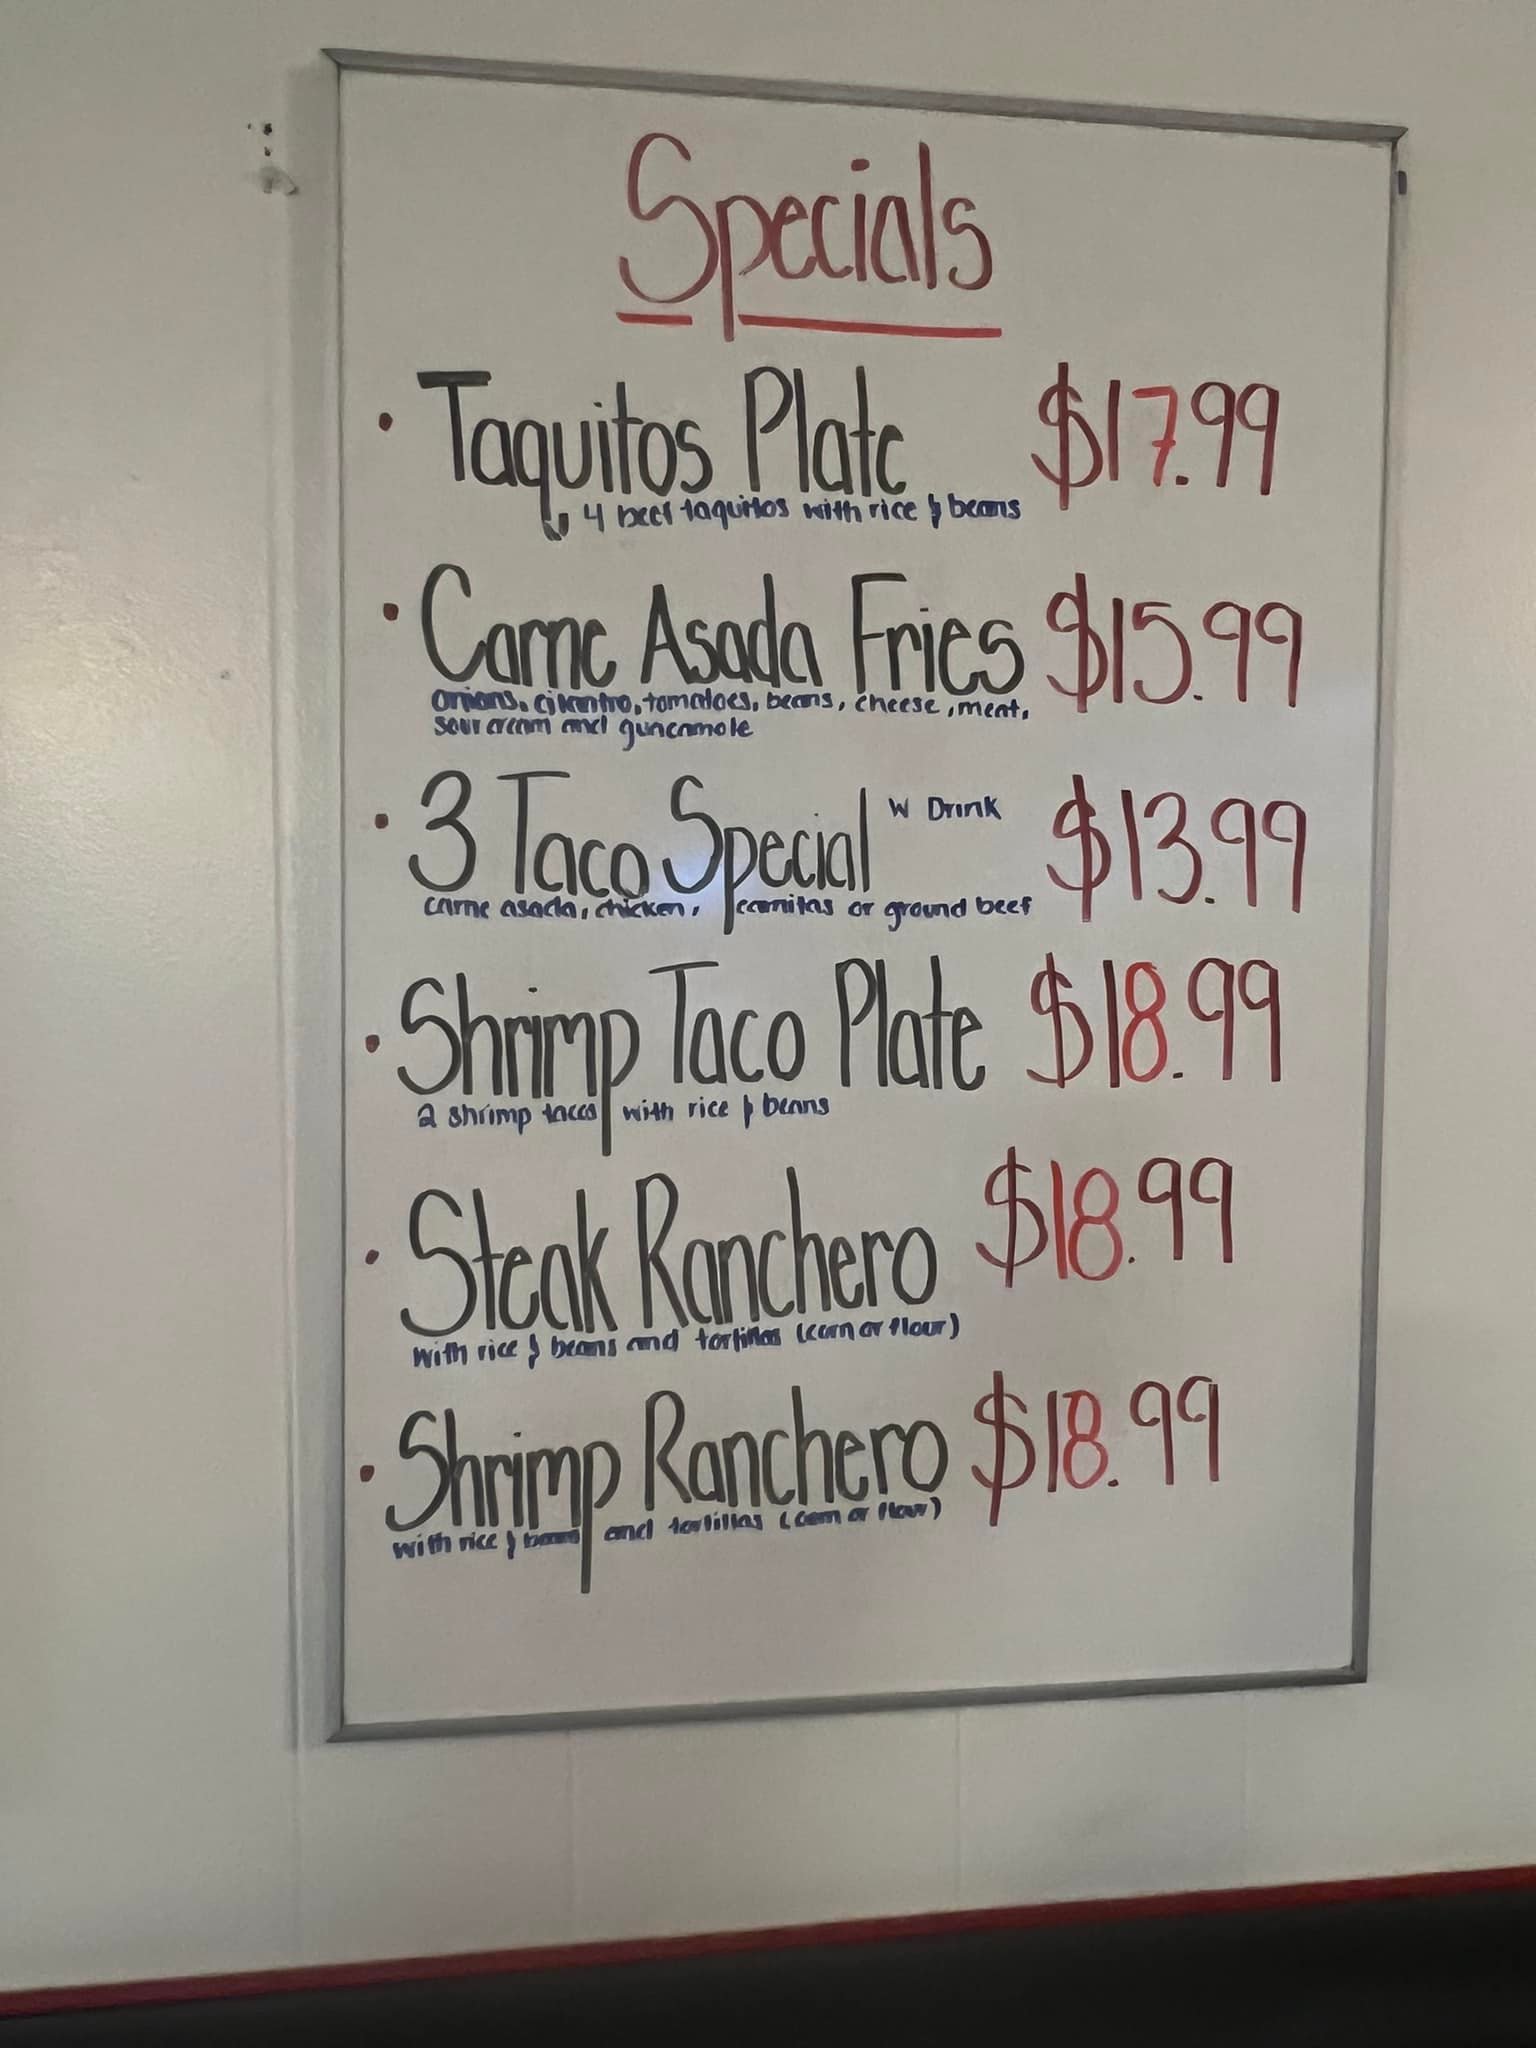 Specials
• Taquitos Plate $17.99
↳ 4 beef taquitos with rice & beans
• Carne Asada Fries $15.99
onions, cilantro, tomatoes, beans, cheese, meat,
sour cream and guacamole
• 3 Taco Special W Drink $13.99
carne asada, chicken, carnitas or ground beef
• Shrimp Taco Plate $18.99
2 shrimp tacos with rice & beans
• Steak Ranchero $18.99
with rice & beans and tortillas (corn or flour)
• Shrimp Ranchero $18.99
with rice & beans and tortillas (corn or flour)